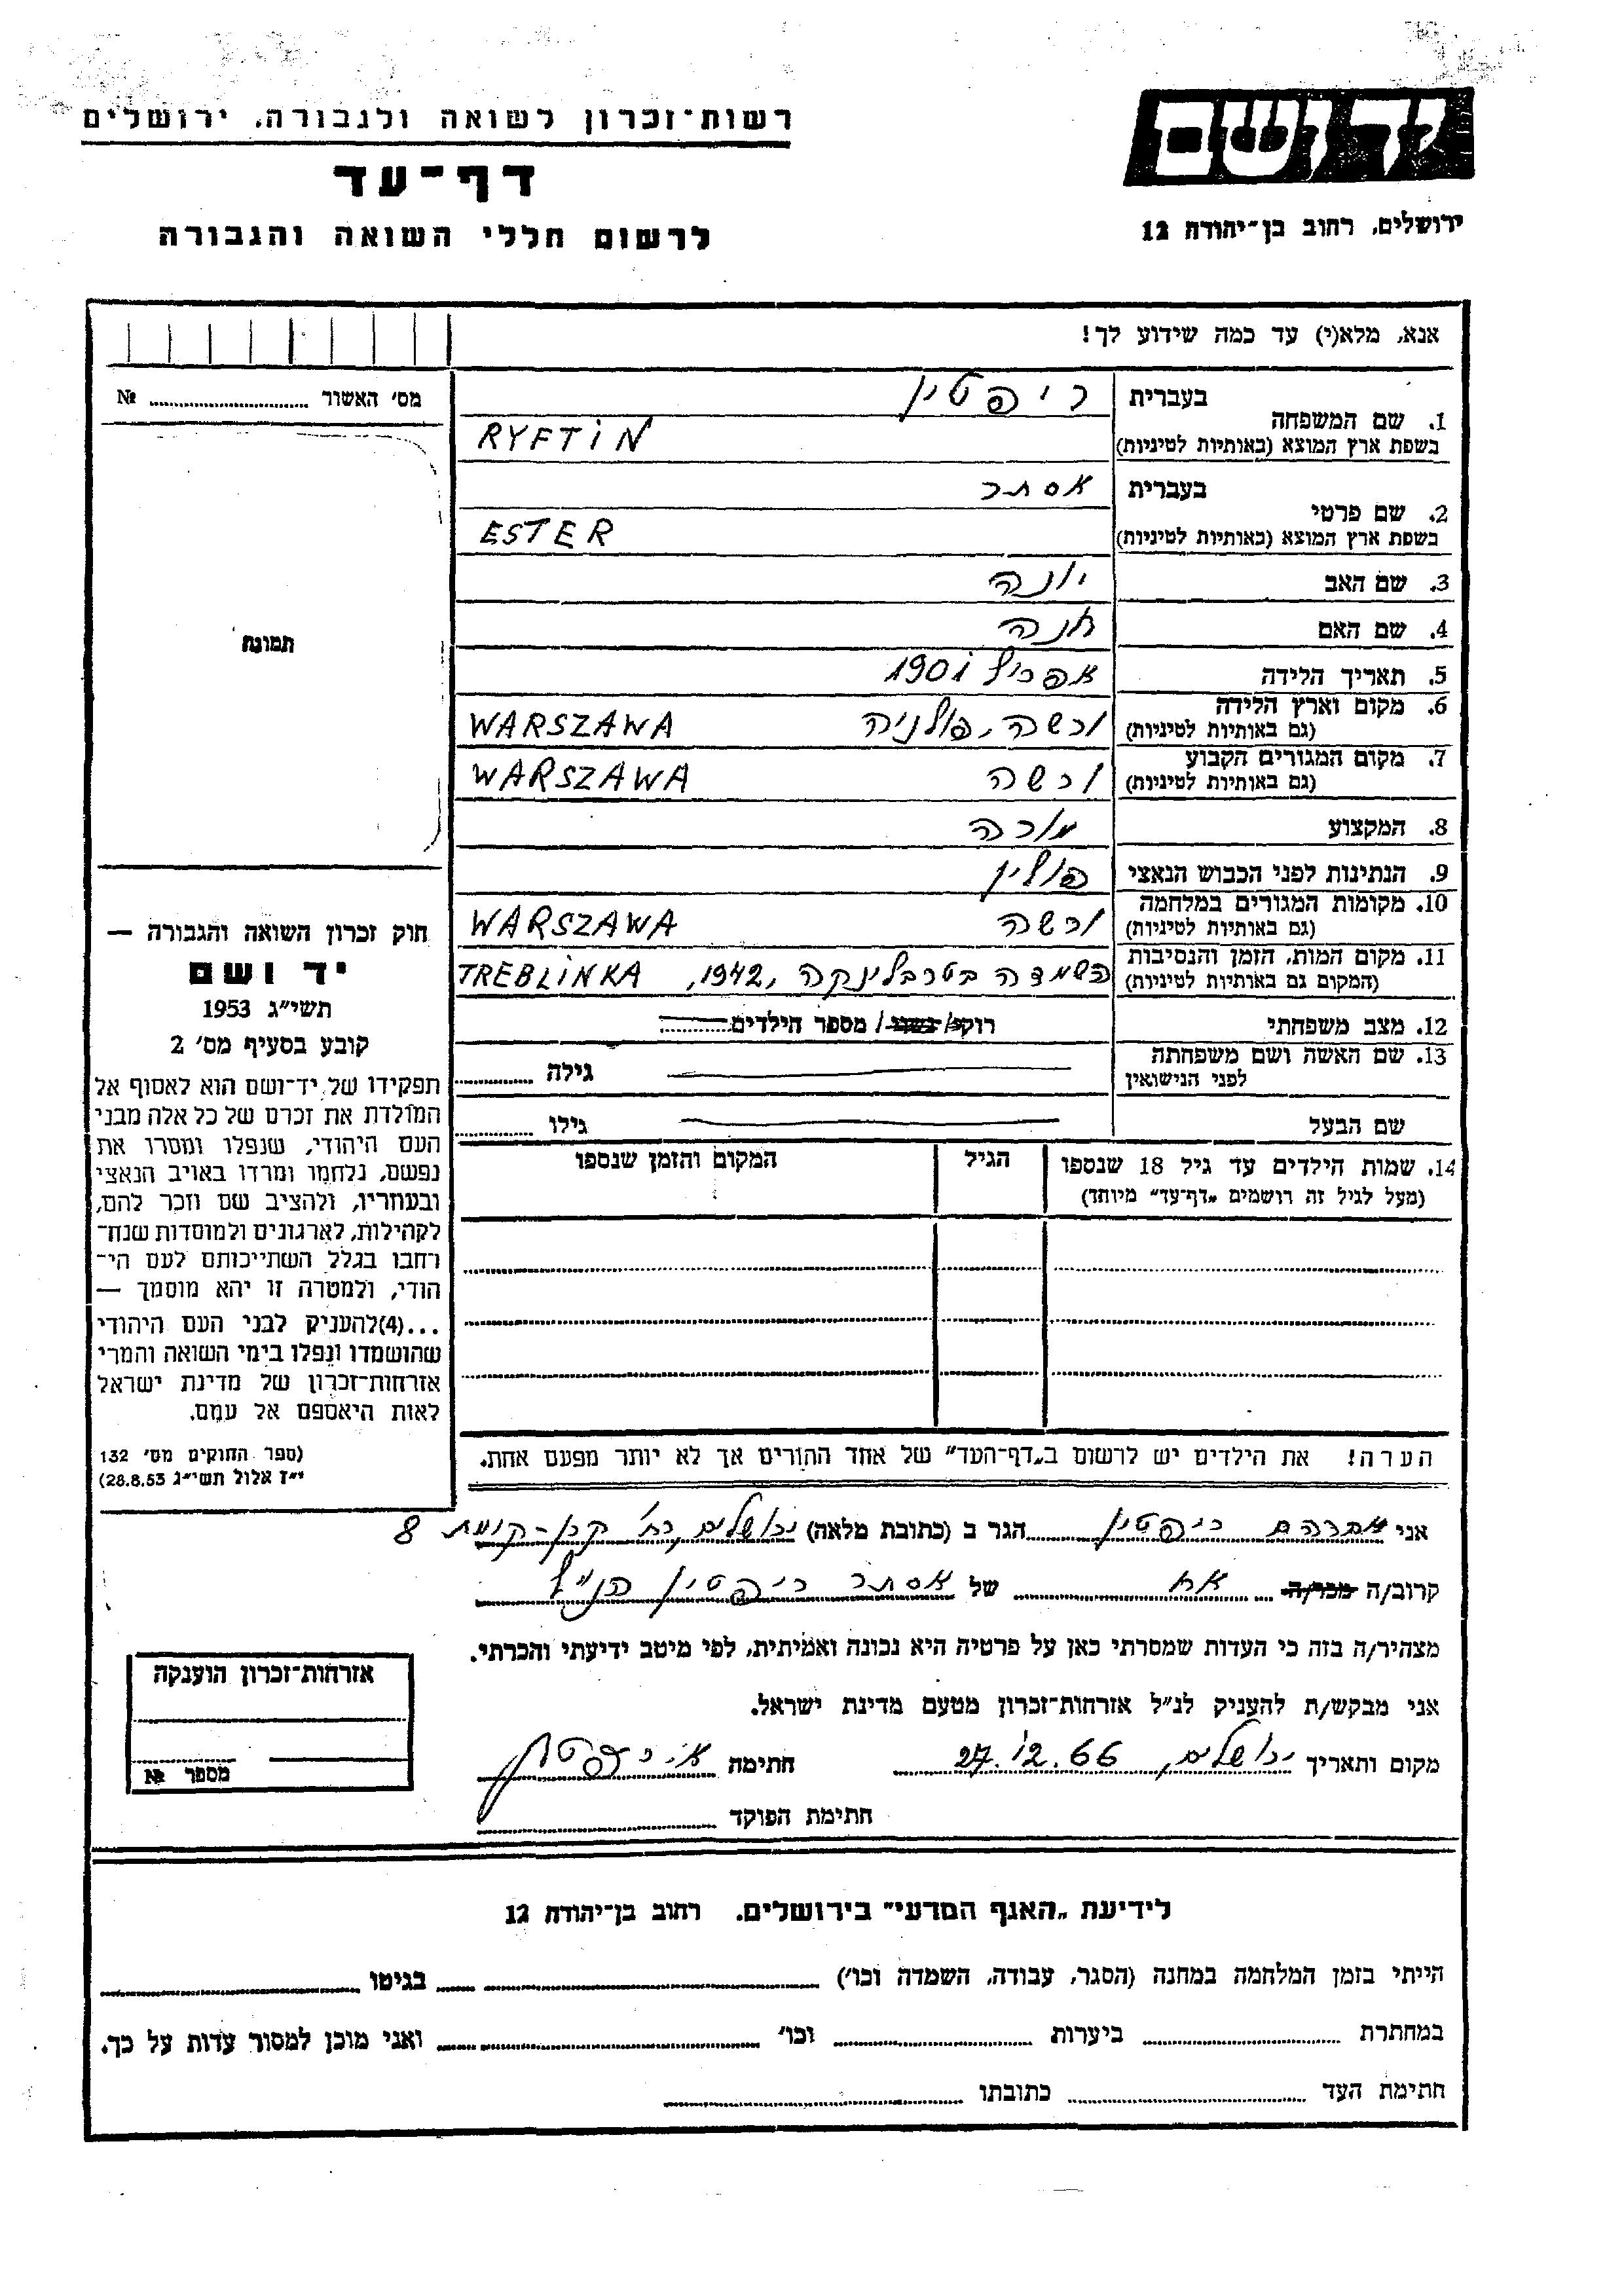 יד ושם
ירושלים, רחוב בן־יהודה 12
רשות־זכרון לשואה ולגבורה, ירושלים
דף־עד
לרשום חללי השואה והגבורה
אנא, מלא(י) עד כמה שידוע לך!
מס' האשור № 
1. שם המשפחה
בעברית ריפטין
בשפת ארץ המוצא (באותיות לטיניות) RYFTIN
2. שם פרטי
בעברית אסתר
בשפת ארץ המוצא (באותיות לטיניות) ESTER
3. שם האב יונה
4. שם האם חנה
5. תאריך הלידה אפריל 1901
6. מקום וארץ הלידה
(גם באותיות לטיניות) ורשה, פולניה WARSZAWA
7. מקום המגורים הקבוע
(גם באותיות לטיניות) ורשה WARSZAWA
8. המקצוע מורה
9. הנתינות לפני הכבוש הנאצי פולין
10. מקומות המגורים במלחמה
(גם באותיות לטיניות) ורשה WARSZAWA
11. מקום המות, הזמן והנסיבות
(המקום גם באותיות לטיניות) השמדה בטרבלינקה, 1942, TREBLINKA
12. מצב משפחתי רוקה/נשוי/ מספר הילדים
13. שם האשה ושם משפחתה
לפני הנישואין גילה
שם הבעל גילו
14. שמות הילדים עד גיל 18 שנספו הגיל המקום והזמן שנספו
(מעל לגיל זה רושמים "דף־עד" מיוחד)
הערה! את הילדים יש לרשום ב"דף־העד" של אחד ההורים אך לא יותר מפעם אחת.
תמונה
חוק זכרון השואה והגבורה —
יד ושם
תשי"ג 1953
קובע בסעיף מס' 2
תפקידו של יד־ושם הוא לאסוף אל
המולדת את זכרם של כל אלה מבני
העם היהודי, שנפלו ומסרו את
נפשם, נלחמו ומרדו באויב הנאצי
ובעוזריו, ולהציב שם וזכר להם,
לקהילות, לארגונים ולמוסדות שנח־
רחבו בגלל השתייכותם לעם הי־
הודי, ולמטרה זו יהא מוסמך —
...(4)להעניק לבני העם היהודי
שהושמדו ונפלו בימי השואה והמרי
אזרחות־זכרון של מדינת ישראל
לאות היאספם אל עמם.
(ספר החוקים מס' 132
י"ז אלול תשי"ג 28.8.53)
אני אברהם ריפטין הגר ב (כתובת מלאה) ירושלים רח' קרן-קימת 8
קרוב/ה מכר/ה אח של אסתר ריפטין הנ"ל
מצהיר/ה בזה כי העדות שמסרתי כאן על פרטיה היא נכונה ואמיתית, לפי מיטב ידיעתי והכרתי.
אני מבקש/ת להעניק לנ"ל אזרחות־זכרון מטעם מדינת ישראל.
מקום ותאריך ירושלים, 27.12.66 חתימה א. ריפטין
חתימת הפוקד
אזרחות־זכרון הוענקה
מספר №
לידיעת "האגף המדעי" בירושלים. רחוב בן־יהודה 12
הייתי בזמן המלחמה במחנה (הסגר, עבודה, השמדה וכו') בגיטו
במחתרת ביערות וכו' ואני מוכן למסור עדות על כך.
חתימת העד כתובתו